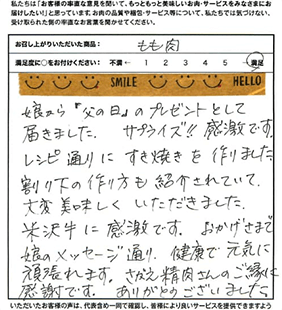 私たちは「お客様の率直な意見を聞いて、もっともっと美味しいお肉・サービスをみなさまにお
届けしたい!」と思っています。お肉の品質や梱包・サービス等について、私たちでは気づけない、
受け取られた側の率直なお言葉を聞かせてください。
お召し上がりいただいた商品: もも肉
満足度に○をお付けください: 不満 ← 1 2 3 4 5 → 満足
SMILE HELLO
娘から『父の日』のプレゼントとして
届きました。 サプライズ!! 感激です。
レシピ通りに すき焼きを作りました
割り下の作り方も紹介されていて、
大変美味しく いただきました。
米沢牛に感激です。 おかげさまで
娘のメッセージ通り、健康で元気に
頑張れます。さかえ精肉さんのご縁に
感謝です。 ありがとうございました
いただいたお客様の声は、代表含め一同で確認し、皆様により良いサービスを提供できますよう